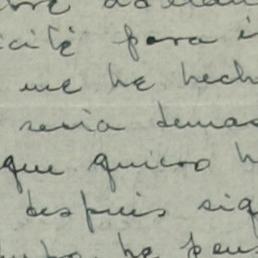 icité para i
me he hech
seria demas
que quiero h
despues sig
he pens